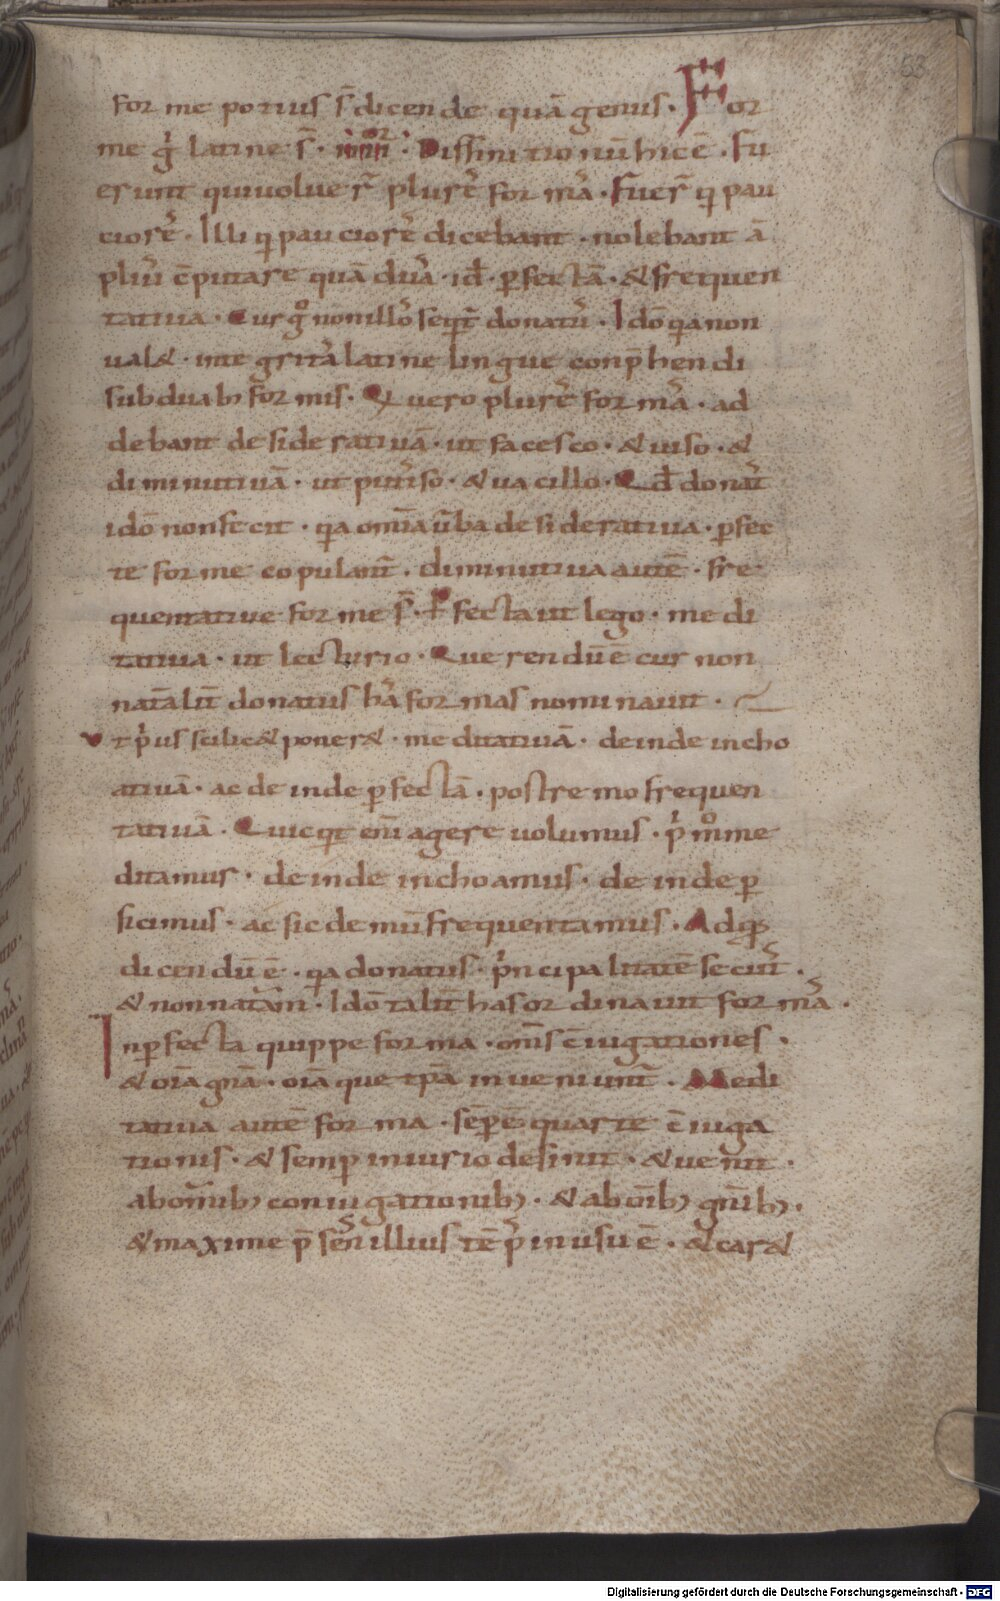 for me potius s̄ dicende quā genus · For
me g̊ latine s̄ · iiii^or · Diffinitio nū hic ē · Fu
erunt qui voluer̄ plurē for mā · Fuer̄ q pau
ciorē · Illi q pauciorē dicebant · nolebant ā
pliū c̄putare quā duā · id · ꝑfectā · & frequen
tativa · Cur g̊ non illō seqt̄ donatū · Idō qa non
ual& · integritā latine lingue conp̄hendi
sub duab; for mis · Qui uero plurē for mā · ad
debant desideratiuā · ut facesco · & uiso · &
diminutiuā · ut pitisso · & uacillo · Qd̄ donat̄
idō non fecit · qa om̄ia ūba desideratiua · ꝑfec
te forme copulant̄ · diminutiua autē · fre
quentatiue forme s̄ · Ꝑfecta ut lego · medi
tatiua · ut lecturio · Querendū ē cur non
nat̄alit̄ donatus hā formas nominauit ·
Vt p̄us scilic& poner& · meditatiuā · deinde incho
atiuā · ac deinde ꝑfectā · postremo frequen
tatiuā · Quicqt em̄ agere uolumus · p̄mo me
ditamur · deinde inchoamus · deinde ꝑ
ficimus · ac sic demū frequentamus · Ad q
dicendū ē · qa donatus · p̄ncipalitatē secut̄ ·
& non nat̄am · Idō talit̄ has ordinauit for mā ·
Inꝑfecta quippe forma · om̄s c̄iugationes ·
& oīa gn̄a · oīa que tp̄a inueniunt̄ · Medi
tatiua autē forma · sēꝑ ē quarte c̄iuga
tionis · & semꝑ in urio desinit · & uenit ·
ab om̄ib; coniugationib; · & ab om̄ib; gn̄ib; ·
& maxime p̄sen illius tēp̄ in usu ē · & car&
53
Digitalisierung gefördert durch die Deutsche Forschungsgemeinschaft - DFG